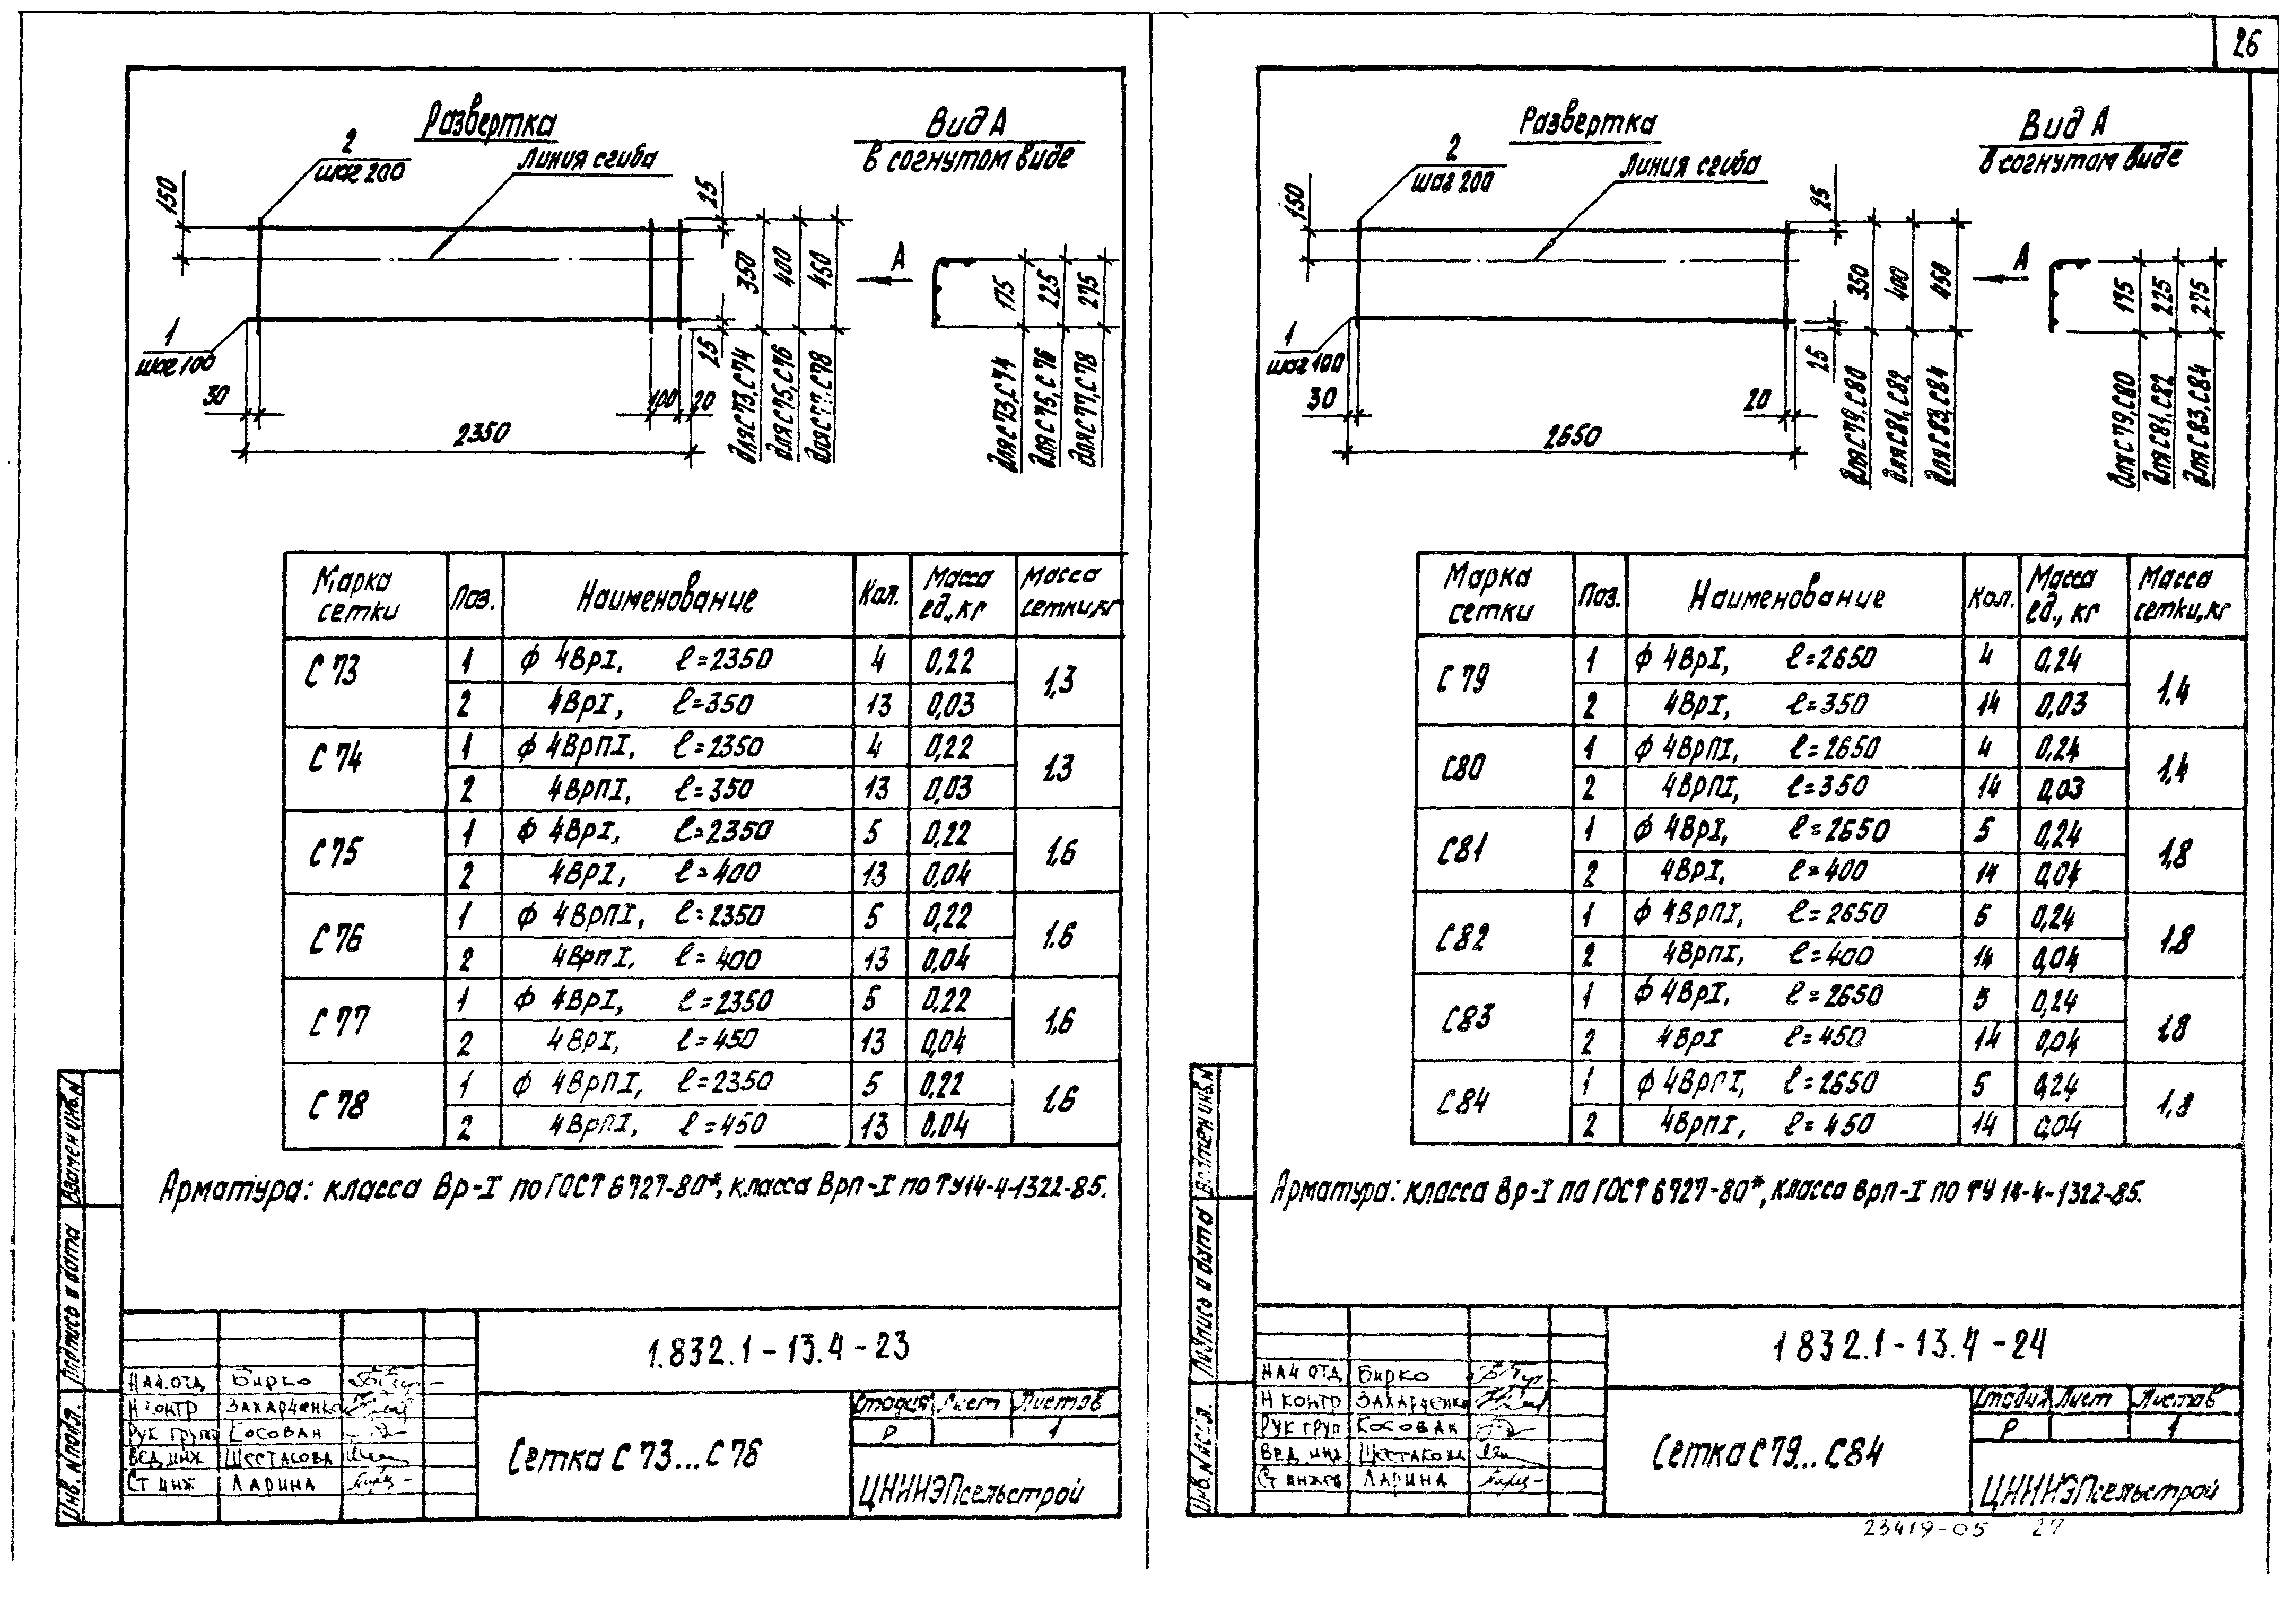 26
Развертка
Вид А
в согнутом виде
2
шаг 200
Линия сгиба
150
25
350
400
450
А
175
225
275
1
шаг 100
30
100
20
25
2350
для С73, С74
для С75, С76
для С77, С78
для С73, С74
для С75, С76
для С77, С78
Марка сетки Поз. Наименование Кол. Масса ед., кг Масса сетки, кг
С 73 1 ф 4ВрI, ℓ=2350 4 0,22 1,3
2 4ВрI, ℓ=350 13 0,03
С 74 1 ф 4ВрПI, ℓ=2350 4 0,22 1.3
2 4ВрПI, ℓ=350 13 0,03
С 75 1 ф 4ВрI, ℓ=2350 5 0,22 1,6
2 4ВрI, ℓ=400 13 0,04
С 76 1 ф 4ВрПI, ℓ=2350 5 0,22 1.6
2 4ВрпI, ℓ=400 13 0,04
С 77 1 ф 4ВрI, ℓ=2350 5 0,22 1,6
2 4ВрI, ℓ=450 13 0,04
С 78 1 ф 4ВрПI, ℓ=2350 5 0,22 1,6
2 4ВрПI, ℓ=450 13 0.04
Арматура: класса Вр-I по ГОСТ 6727-80*, класса Врп-I по ТУ14-4-1322-85.
Взамен инв.N
Подпись и дата
Инв. N подл.
1.832.1-13.4-23
Нач.отд Бирко
Н контр Захарченко
Рук групп Косован
Вед.инж Шестакова
Ст инж Ларина
Сетка С 73...С 78
Стадия Лист Листов
Р 1
ЦНИИЭПсельстрой
Развертка
Вид А
в согнутом виде
2
шаг 200
Линия сгиба
150
25
350
400
450
А
175
225
275
1
шаг 100
30
20
25
2650
для С79, С80
для С81, С82
для С83, С84
для С79, С80
для С81, С82
для С83, С84
Марка сетки Поз. Наименование Кол. Масса ед., кг Масса сетки, кг
С 79 1 ф 4ВрI, ℓ=2650 4 0,24 1,4
2 4ВрI, ℓ=350 14 0,03
С80 1 ф 4ВрПI, ℓ=2650 4 0,24 1,4
2 4ВрПI, ℓ=350 14 0,03
С81 1 ф 4ВрI, ℓ=2650 5 0,24 1,8
2 4ВрI, ℓ=400 14 0,04
С82 1 ф 4ВрПI, ℓ=2650 5 0,24 1,8
2 4ВрПI, ℓ=400 14 0,04
С83 1 ф 4ВрI, ℓ=2650 5 0,24 1,8
2 4ВрI ℓ=450 14 0,04
С84 1 ф 4ВрПI, ℓ=2650 5 0,24 1,8
2 4ВрПI, ℓ=450 14 0,04
Арматура: класса Вр-I по ГОСТ 6727-80*, класса Врп-I по ТУ 14-4-1322-85.
Взамен инв.N
Подпись и дата
1 832.1-13.4-24
Нач отд Бирко
Н контр Захарченко
Рук груп Косован
Вед инж Шестакова
Ст инжен Ларина
Сетка С79...С84
Стадия Лист Листов
Р 1
ЦНИИЭПсельстрой
23419-05 27